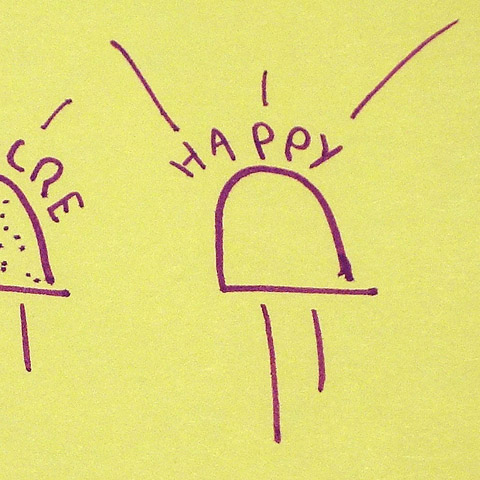 CRE
HAPPY